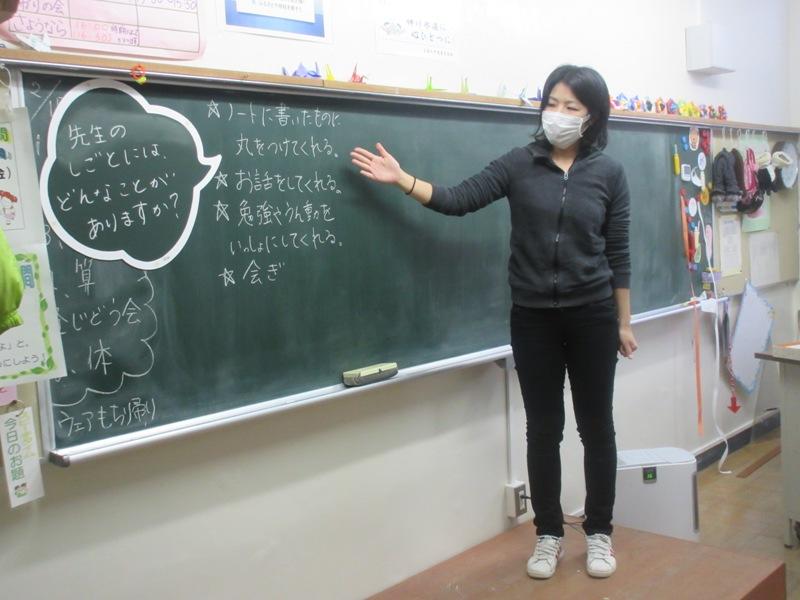 さようなら
先生の
しごとには、
どんなことが
ありますか?
☆ノートに書いたものに、
丸をつけてくれる。
☆お話をしてくれる。
☆勉強やうん動を
いっしょにしてくれる。
☆会ぎ
算
じどう会
体
ウェアもち帰り
今日のお題